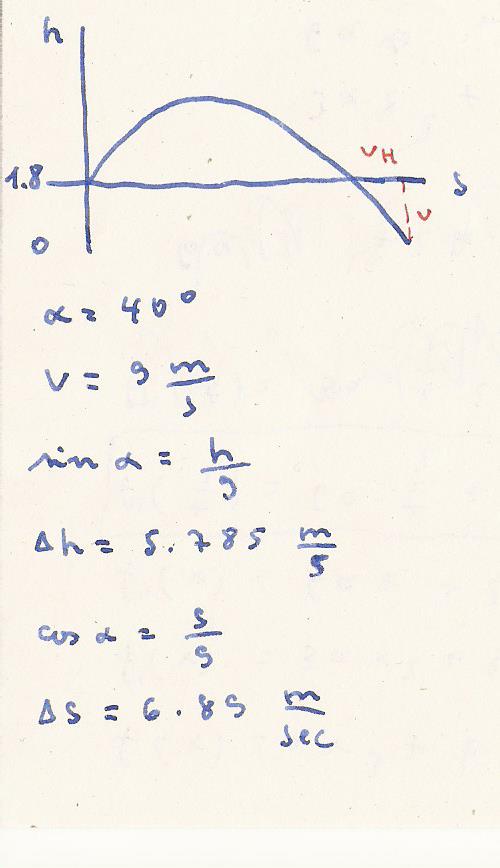 h
1.8
v_H
s
v
0
α = 40°
v = 9 m/s
sin α = h/9
Δh = 5.785 m/s
cos α = s/9
Δs = 6.89 m/sec